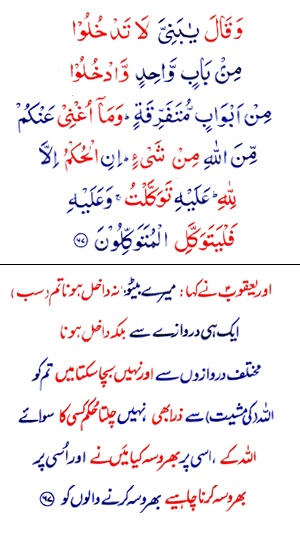 وَقَالَ يٰبَنِىَّ لَا تَدۡخُلُوۡا
مِنۡۢ بَابٍ وَّاحِدٍ وَّادۡخُلُوۡا
مِنۡ اَبۡوَابٍ مُّتَفَرِّقَةٍ ؕ وَمَاۤ اُغۡنِىۡ عَنۡكُمۡ
مِّنَ اللّٰهِ مِنۡ شَىۡءٍ ؕ اِنِ الۡحُكۡمُ اِلَّا
لِلّٰهِ ؕ عَلَيۡهِ تَوَكَّلۡتُ ۚ وَعَلَيۡهِ
فَلۡيَتَوَكَّلِ الۡمُتَوَكِّلُوۡنَ ﴿۶۷﴾
اور یعقوبؑ نے کہا: میرے بیٹو! نہ داخل ہونا تم (سب)
ایک ہی دروازے سے بلکہ داخل ہونا
مختلف دروازوں سے اور نہیں بچا سکتا میں تم کو
اللہ (کی مشیت) سے ذرا بھی نہیں چلتا حکم کسی کا سوائے
اللہ کے ، اسی پر بھروسہ کیا میں نے اور اُسی پر
بھروسہ کرنا چاہیے بھروسہ کرنے والوں کو ﴿۶۷﴾